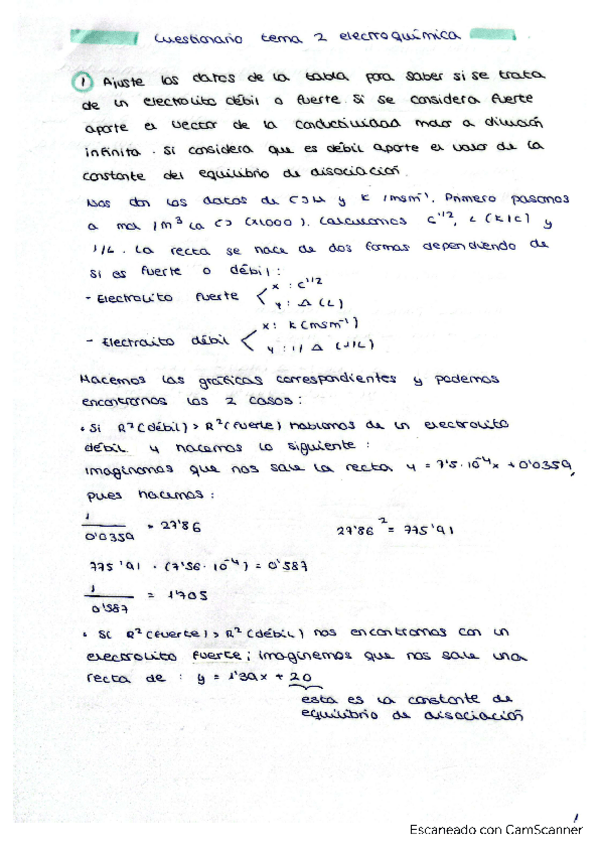 Cuestionario tema 2 electroquímica
1 Ajuste los datos de la tabla para saber si se trata
de un electrolito débil o fuerte. Si se considera fuerte
aporte el vector de la conductividad molar a dilución
infinita. Si considera que es débil aporte el valor de la
constante del equilibrio de disociación.
Nos dan los datos de C) M y K (msm⁻¹. Primero pasamos
a mol/m³ la C) (x1000). Calculamos c^1/2, L (K/C) y
1/L. La recta se hace de dos formas dependiendo de
si es fuerte o débil:
- Electrolito fuerte < x: c^1/2
y: Λ (L)
- Electrolito débil < x: K (msm⁻¹)
y: 1/Λ (1/L)
Hacemos las gráficas correspondientes y podemos
encontrarnos los 2 casos:
• Si R² (débil) > R² (fuerte) hablamos de un electrolito
débil y hacemos lo siguiente:
imaginemos que nos sale la recta y = 7'5·10⁻⁴x + 0'0359,
pues hacemos:
1/0'0359 = 27'86 27'86² = 775'91
775'91 · (7'56·10⁻⁴) = 0'587
1/0'587 = 1'705
• Si R² (fuerte) > R² (débil) nos encontramos con un
electrolito fuerte; imaginemos que nos sale una
recta de: y = 1'39x + 20
esta es la constante de
equilibrio de disociación
1
Escaneado con CamScanner